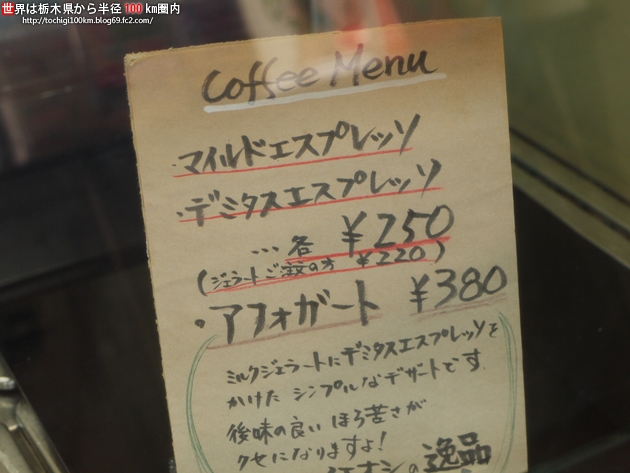 世界は栃木県から半径100km圏内
http://tochigi100km.blog69.fc2.com/
Coffee Menu
・マイルドエスプレッソ
・デミタスエスプレッソ
…各 ¥250
(ジェラートご注文の方 ¥220)
・アフォガート ¥380
ミルクジェラートにデミタスエスプレッソを
かけた シンプルなデザートです
後味の良い ほろ苦さが
クセになりますよ!
の逸品